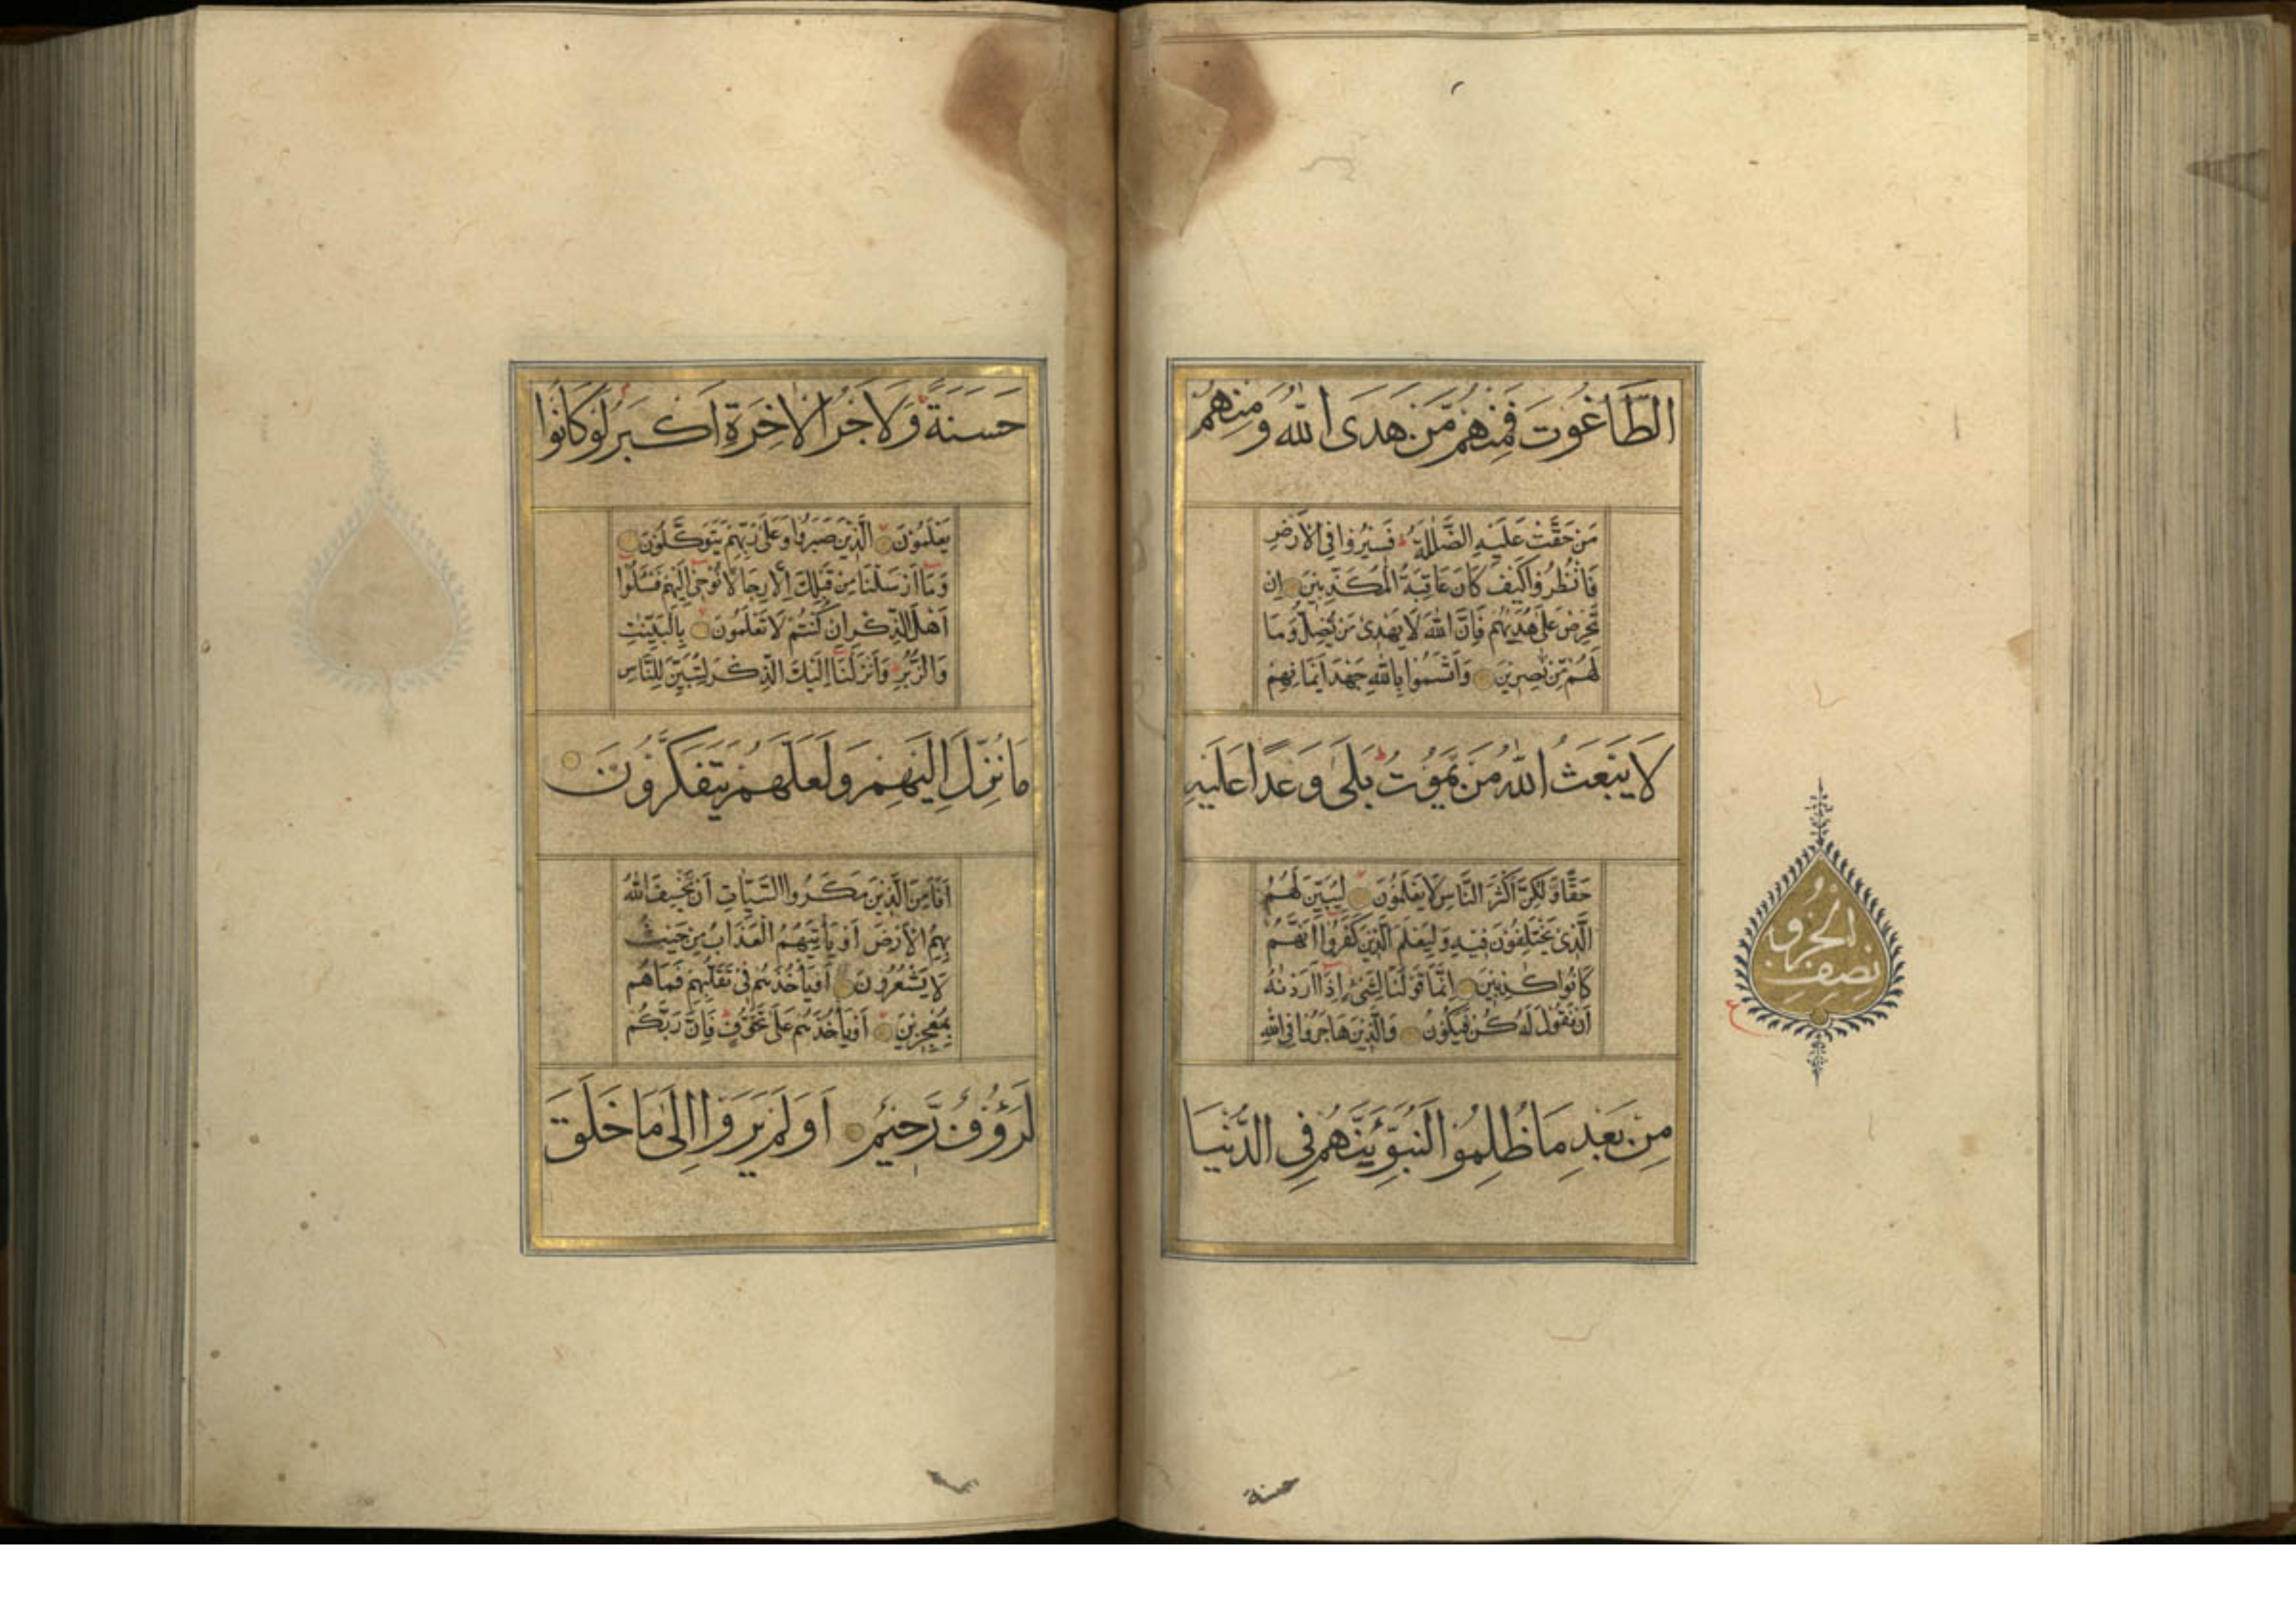 الطَّاغُوتَ فَمِنْهُمْ مَّنْ هَدَى اللّٰهُ وَمِنْهُمْ
مَنْ حَقَّتْ عَلَيْهِ الضَّلٰلَةُ ط فَسِيْرُوا فِى الْاَرْضِ
فَانْظُرُوا كَيْفَ كَانَ عَاقِبَةُ الْمُكَذِّبِيْنَ اِنْ
تَحْرِصْ عَلٰى هُدٰيهُمْ فَاِنَّ اللّٰهَ لَا يَهْدِىْ مَنْ يُضِلُّ وَمَا
لَهُمْ مِّنْ نّٰصِرِيْنَ وَاَقْسَمُوا بِاللّٰهِ جَهْدَ اَيْمَانِهِمْ
لَا يَبْعَثُ اللّٰهُ مَنْ يَّمُوْتُ ط بَلٰى وَعْدًا عَلَيْهِ
حَقًّا وَّلٰكِنَّ اَكْثَرَ النَّاسِ لَا يَعْلَمُوْنَ لِيُبَيِّنَ لَهُمُ
الَّذِىْ يَخْتَلِفُوْنَ فِيْهِ وَلِيَعْلَمَ الَّذِيْنَ كَفَرُوْا اَنَّهُمْ
كَانُوْا كٰذِبِيْنَ اِنَّمَا قَوْلُنَا لِشَىْءٍ اِذَا اَرَدْنٰهُ
اَنْ نَّقُوْلَ لَهُ كُنْ فَيَكُوْنُ وَالَّذِيْنَ هَاجَرُوْا فِى اللّٰهِ
مِنْ بَعْدِ مَا ظُلِمُوْا لَنُبَوِّئَنَّهُمْ فِى الدُّنْيَا
نصف الجزو
ع
حسنة
حَسَنَةً ط وَلَاَجْرُ الْاٰخِرَةِ اَكْبَرُ لَوْ كَانُوْا
يَعْلَمُوْنَ الَّذِيْنَ صَبَرُوْا وَعَلٰى رَبِّهِمْ يَتَوَكَّلُوْنَ
وَمَا اَرْسَلْنَا مِنْ قَبْلِكَ اِلَّا رِجَالًا نُّوْحِىْ اِلَيْهِمْ فَسْئَلُوْا
اَهْلَ الذِّكْرِ اِنْ كُنْتُمْ لَا تَعْلَمُوْنَ بِالْبَيِّنٰتِ
وَالزُّبُرِ ط وَاَنْزَلْنَا اِلَيْكَ الذِّكْرَ لِتُبَيِّنَ لِلنَّاسِ
مَا نُزِّلَ اِلَيْهِمْ وَلَعَلَّهُمْ يَتَفَكَّرُوْنَ
اَفَاَمِنَ الَّذِيْنَ مَكَرُوا السَّيِّاٰتِ اَنْ يَّخْسِفَ اللّٰهُ
بِهِمُ الْاَرْضَ اَوْ يَاْتِيَهُمُ الْعَذَابُ مِنْ حَيْثُ
لَا يَشْعُرُوْنَ اَوْ يَاْخُذَهُمْ فِىْ تَقَلُّبِهِمْ فَمَا هُمْ
بِمُعْجِزِيْنَ اَوْ يَاْخُذَهُمْ عَلٰى تَخَوُّفٍ ط فَاِنَّ رَبَّكُمْ
لَرَؤُوْفٌ رَّحِيْمٌ اَوَلَمْ يَرَوْا اِلٰى مَا خَلَقَ